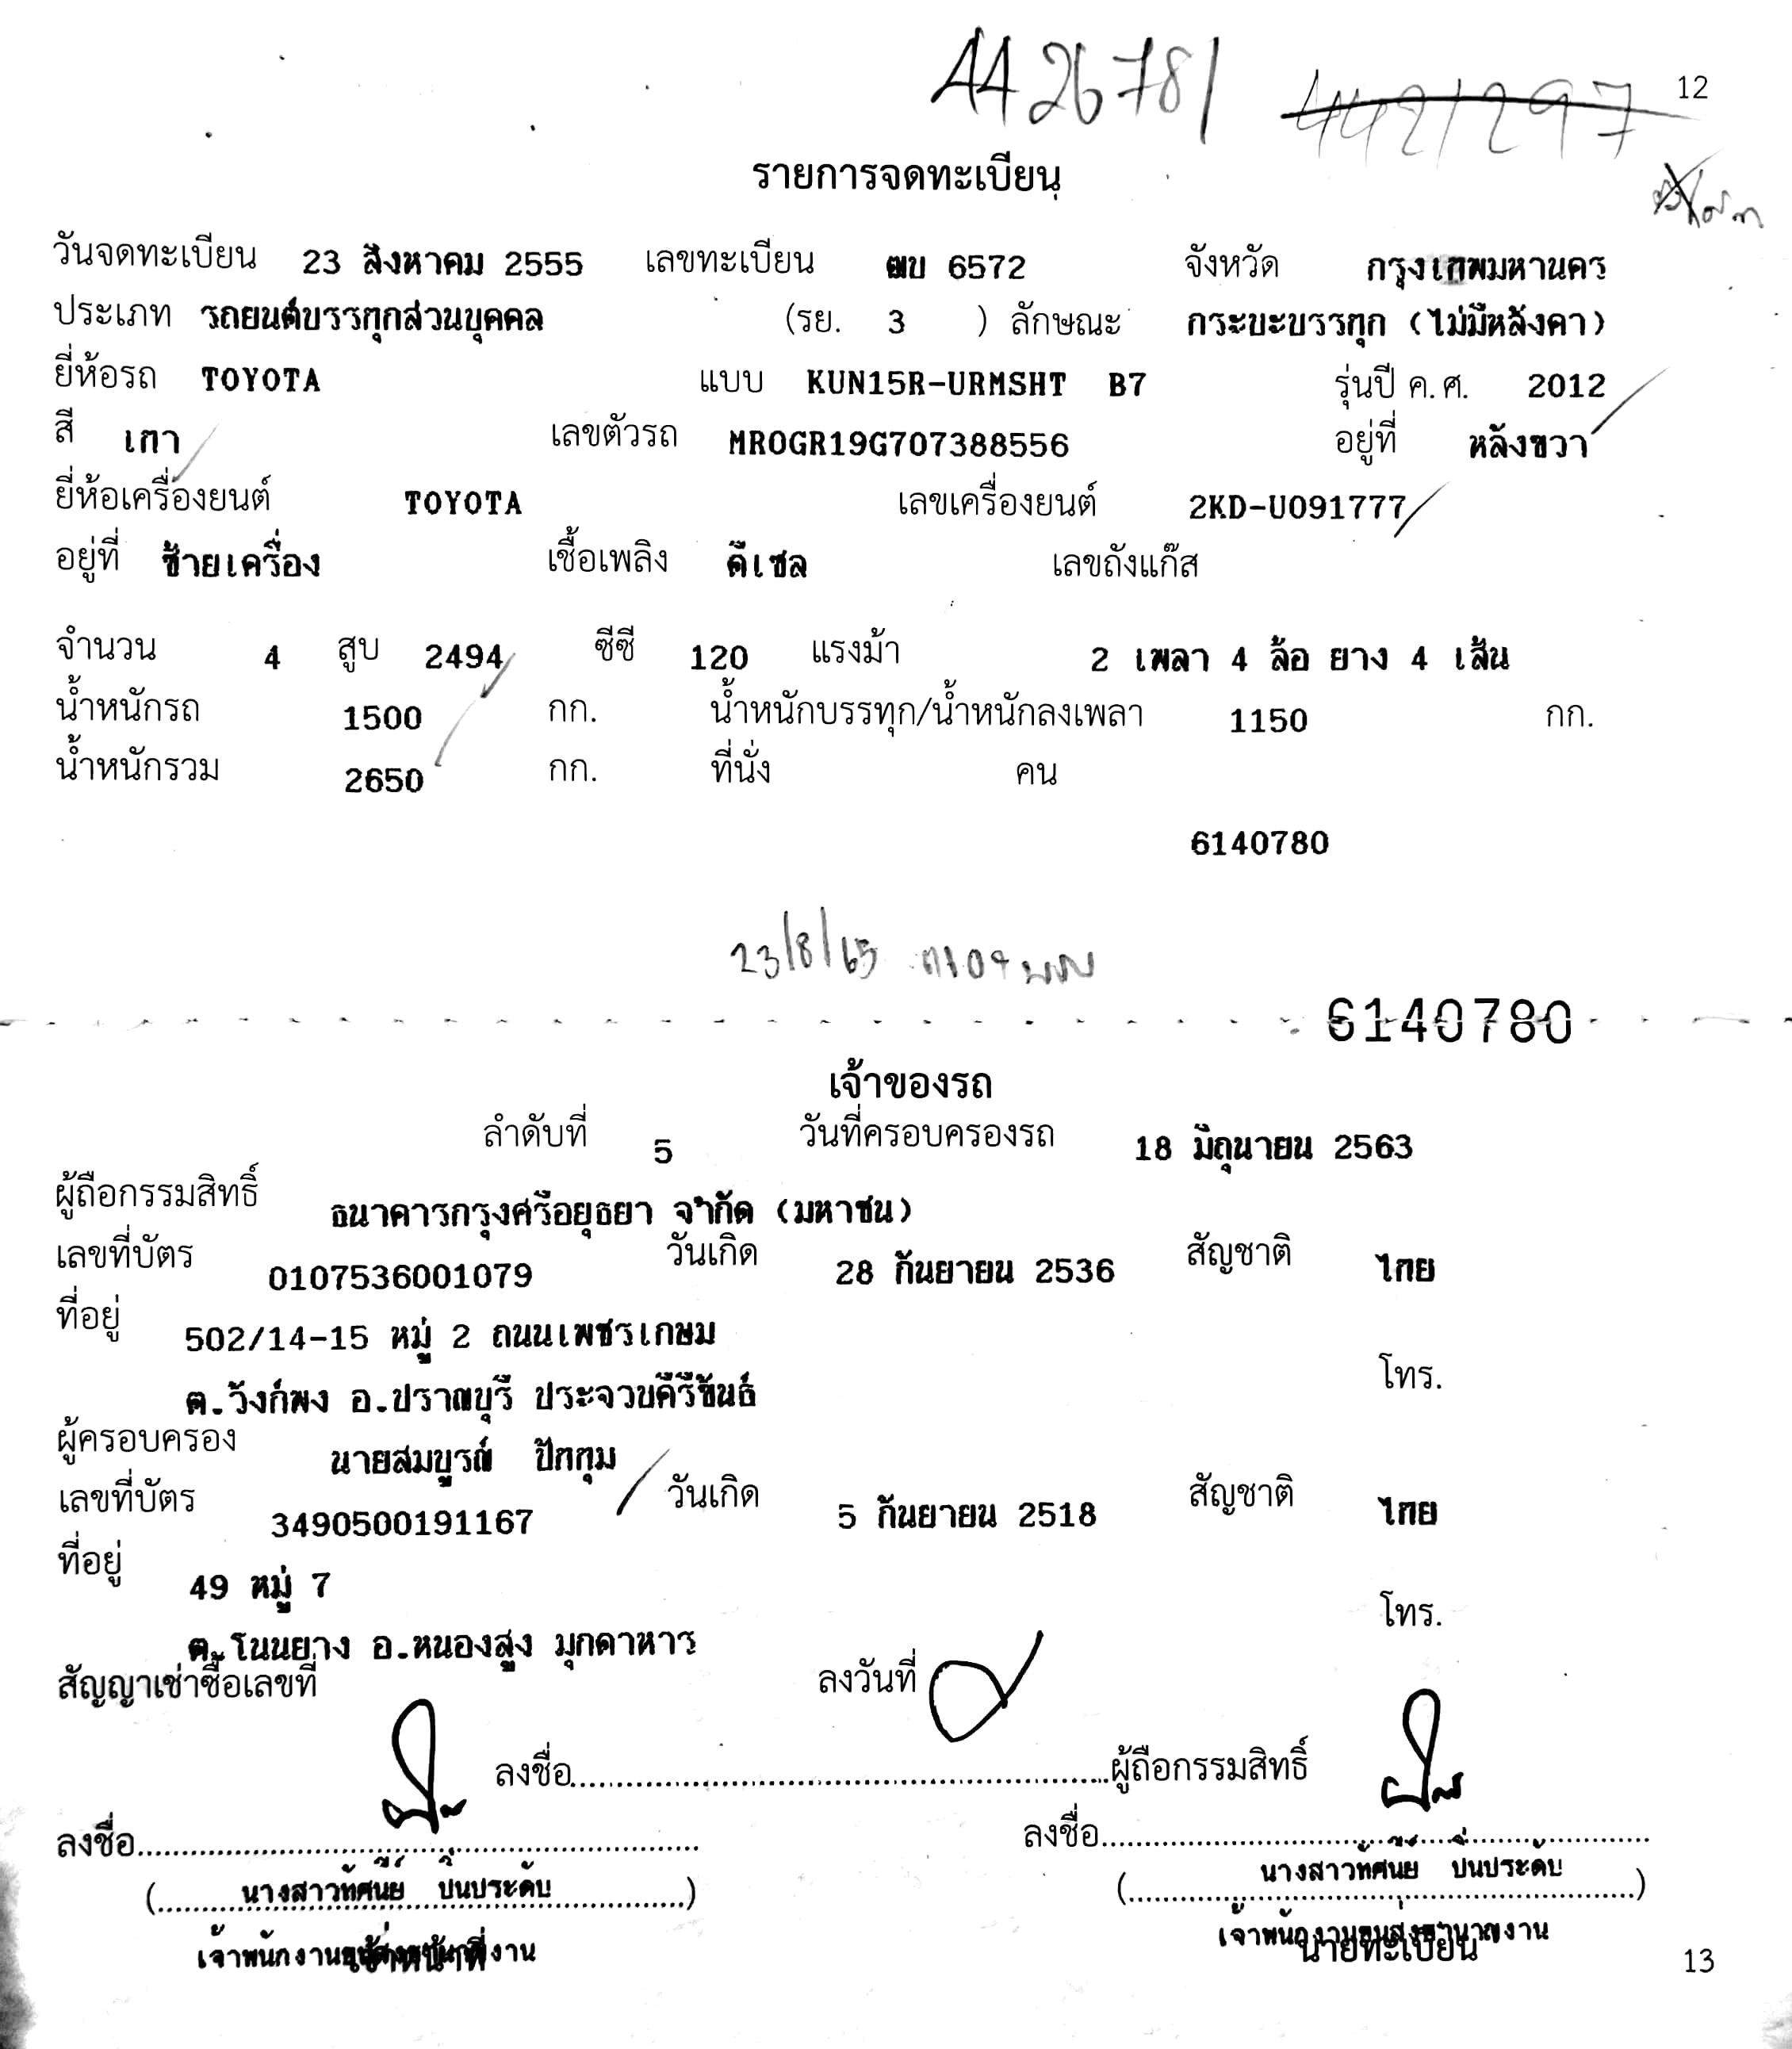 AA 26781 4421297 12
รายการจดทะเบียน
วันจดทะเบียน 23 สิงหาคม 2555 เลขทะเบียน ฒบ 6572 จังหวัด กรุงเทพมหานคร
ประเภท รถยนต์บรรทุกส่วนบุคคล (รย. 3 ) ลักษณะ กระบะบรรทุก (ไม่มีหลังคา)
ยี่ห้อรถ TOYOTA แบบ KUN15R-URMSHT B7 รุ่นปี ค.ศ. 2012
สี เทา เลขตัวรถ MROGR19G707388556 อยู่ที่ หลังขวา
ยี่ห้อเครื่องยนต์ TOYOTA เลขเครื่องยนต์ 2KD-U091777
อยู่ที่ ซ้ายเครื่อง เชื้อเพลิง ดีเซล เลขถังแก๊ส
จำนวน 4 สูบ 2494 ซีซี 120 แรงม้า 2 เพลา 4 ล้อ ยาง 4 เส้น
น้ำหนักรถ 1500 กก. น้ำหนักบรรทุก/น้ำหนักลงเพลา 1150 กก.
น้ำหนักรวม 2650 กก. ที่นั่ง คน
6140780
23/8/65
6140780
เจ้าของรถ
ลำดับที่ 5 วันที่ครอบครองรถ 18 มิถุนายน 2563
ผู้ถือกรรมสิทธิ์ ธนาคารกรุงศรีอยุธยา จำกัด (มหาชน)
เลขที่บัตร 0107536001079 วันเกิด 28 กันยายน 2536 สัญชาติ ไทย
ที่อยู่ 502/14-15 หมู่ 2 ถนนเพชรเกษม
ต.วังก์พง อ.ปราณบุรี ประจวบคีรีขันธ์ โทร.
ผู้ครอบครอง นายสมบูรณ์ ปักกุม
เลขที่บัตร 3490500191167 วันเกิด 5 กันยายน 2518 สัญชาติ ไทย
ที่อยู่ 49 หมู่ 7
ต.โนนยาง อ.หนองสูง มุกดาหาร โทร.
สัญญาเช่าซื้อเลขที่ ลงวันที่
ลงชื่อ ผู้ถือกรรมสิทธิ์
ลงชื่อ ลงชื่อ
(นางสาวทัศนีย์ ปิ่นประดับ) (นางสาวทัศนีย์ ปิ่นประดับ)
เจ้าพนักงานขนส่งชำนาญงาน เจ้าพนักงานขนส่งชำนาญงาน
เจ้าหน้าที่ นายทะเบียน
13